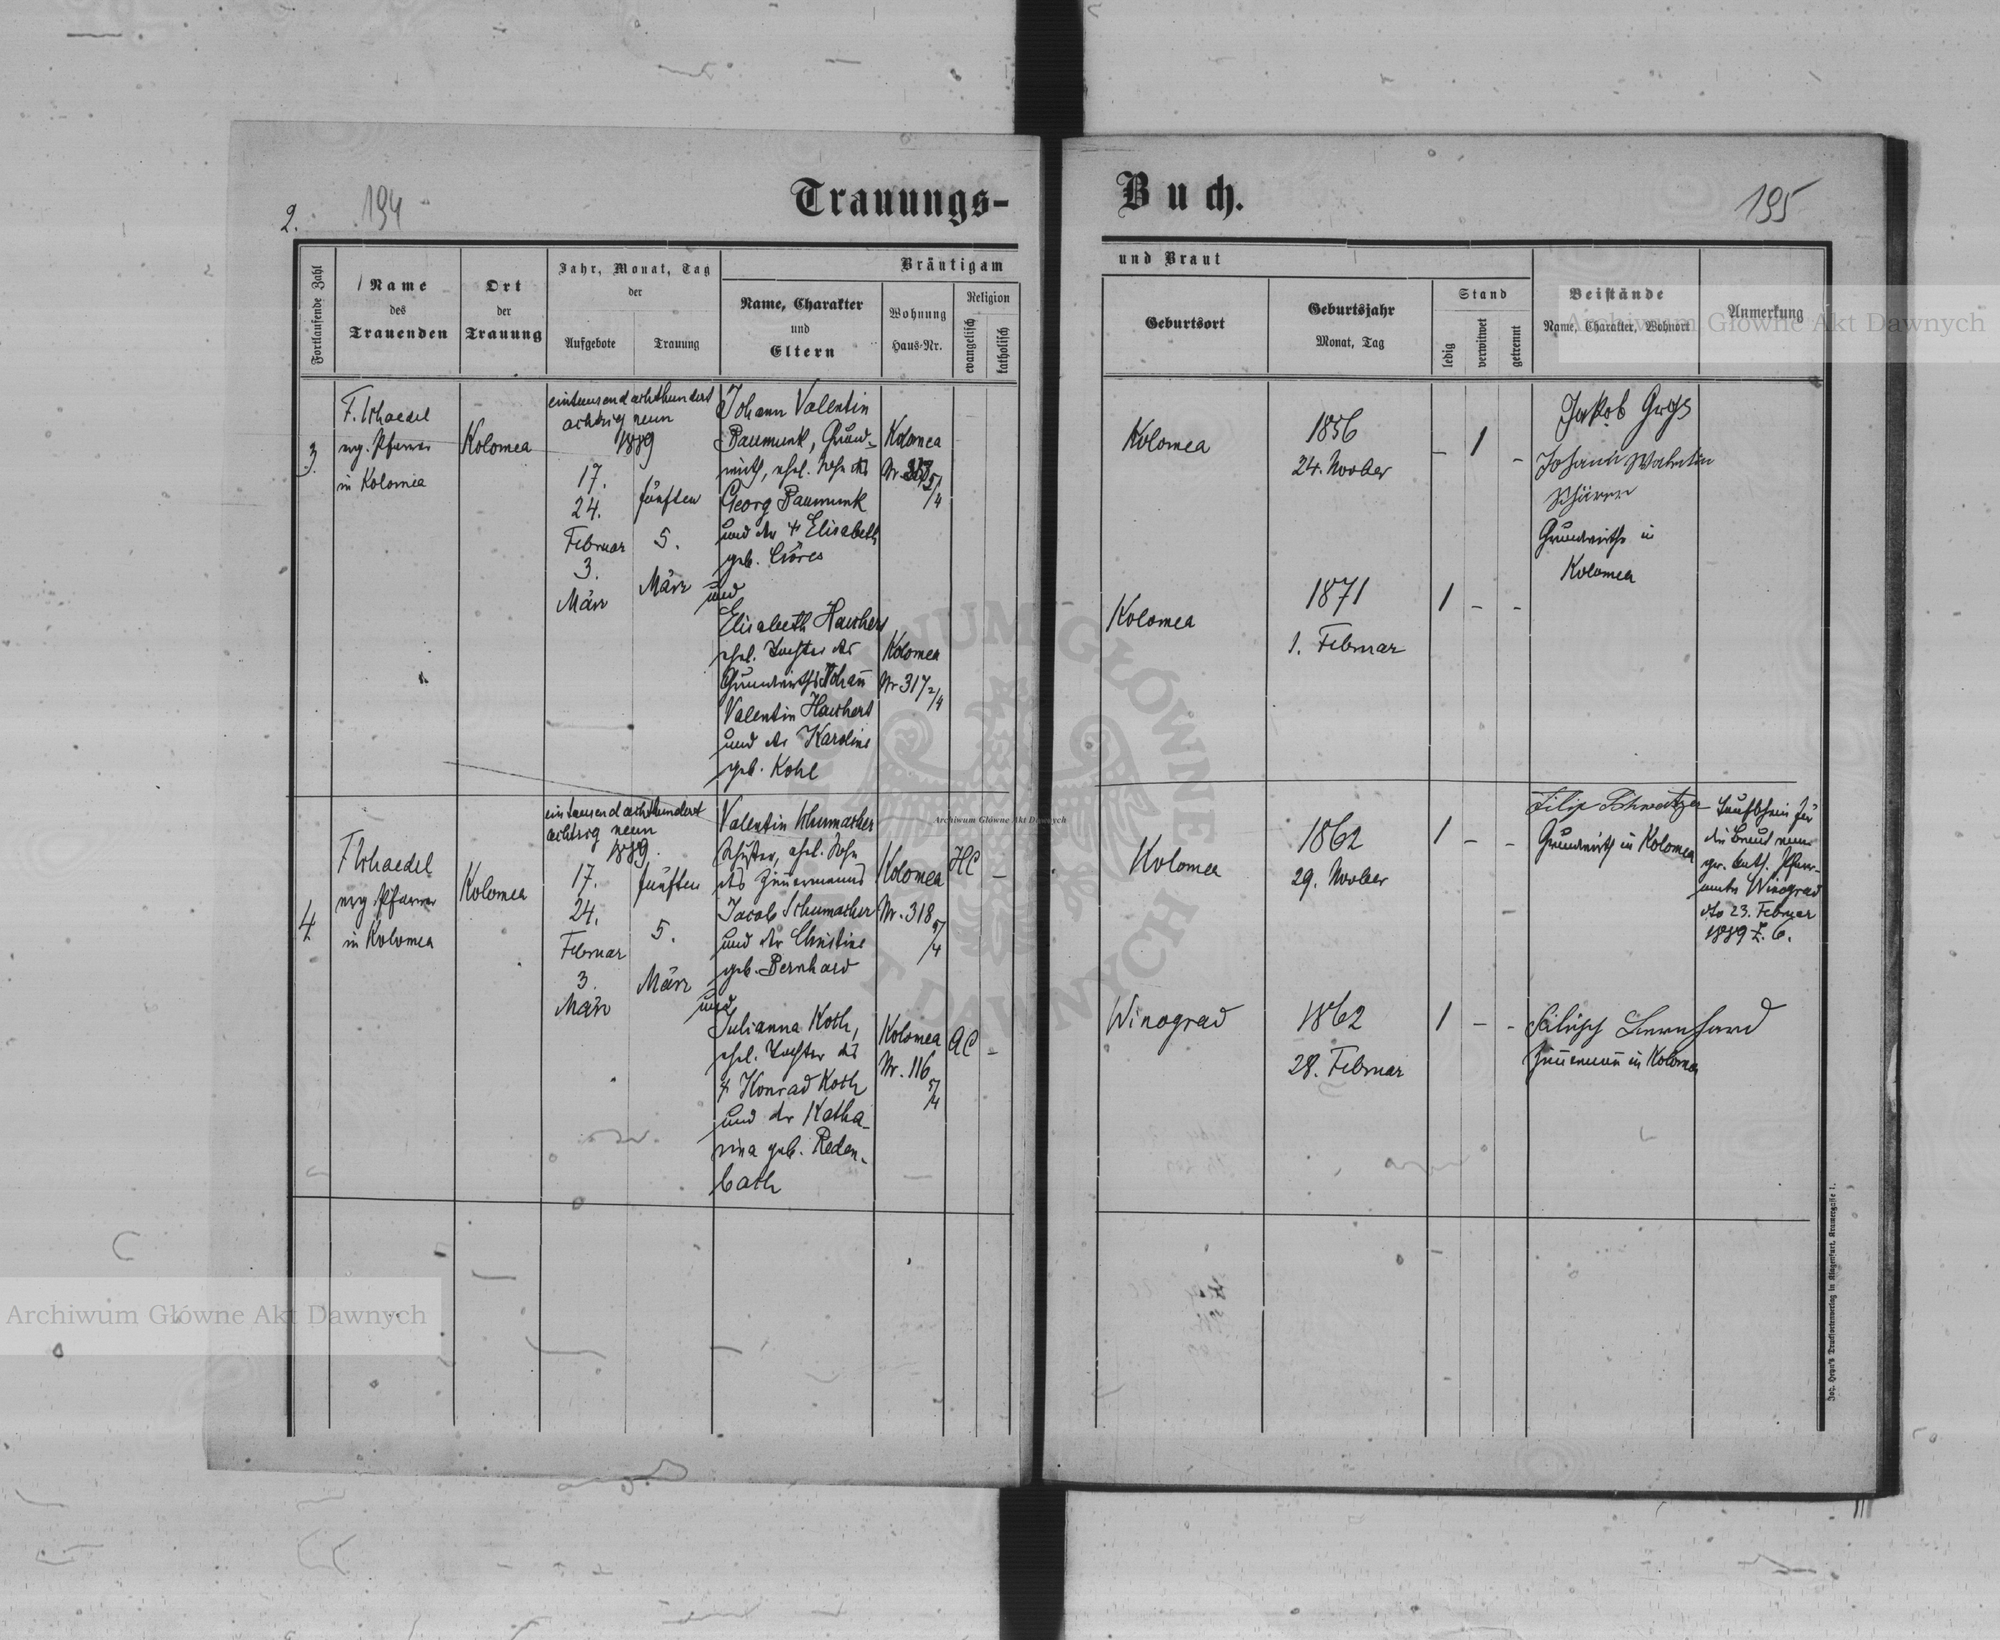 2.
194
Trauungs-
Fortlaufende Zahl
Name
des
Trauenden
Ort
der
Trauung
Jahr, Monat, Tag
der
Aufgebote
Trauung
Bräutigam
Name, Charakter
und
Eltern
Wohnung
Haus-Nr.
Religion
evangelisch
katholisch
3.
F. Schaedel
evg. Pfarrer
in Kolomea
Kolomea
eintausend achthundert
achtzig neun
1889
17.
24.
Februar
3.
März
fünften
5.
März
Johann Valentin
Baumunk, Grund-
wirth, ehel. Sohn des
Georg Baumunk
und der † Elisabeth
geb.
und
Kolomea
Nr.
5/4
Elisabeth
ehel. Tochter des
Grundwirths Johann
Valentin
und der Karoline
geb. Kohl
Kolomea
Nr 317 2/4
4
F Schaedel
evg Pfarrer
in Kolomea
Kolomea
eintausend achthundert
achtzig neun
1889.
17.
24.
Februar
3.
März
fünften
5.
März
Valentin Schumacher
Schuster, ehel. Sohn
des Zimermanns
Jacob Schumacher
und der Christine
geb. Bernhard
und
Kolomea
Nr. 318
5/4
HC
–
Julianna Koth,
ehel. Tochter des
† Konrad Koth
und der Katha-
rina geb. Reden-
bach
Kolomea
Nr. 116
5/4
AC
–
Buch.
195
und Braut
Geburtsort
Geburtsjahr
Monat, Tag
Stand
ledig
verwitwet
getrennt
Beistände
Name, Charakter, Wohnort
Anmerkung
Kolomea
1856
24. Novber
– 1 –
Jakob
Johann
Grundwirthe in
Kolomea
Kolomea
1871
1. Februar
1 – –
Kolomea
1862
29. Novber
1 – –
Filip Schweitzer
Grundwirth in Kolomea
Taufschein für
die Braut vom
gr. kath. Pfarr-
amte Winograd
dto 23. Februar
1889 Z. 6.
Winograd
1862
28. Februar
1 – –
Filipp Bernhard
Zimermann in Kolomea
Joh. Heyn's Drucksortenverlag in Klagenfurt, Kramergasse 1.
Archiwum Główne Akt Dawnych
Archiwum Główne Akt Dawnych
Archiwum Główne Akt Dawnych